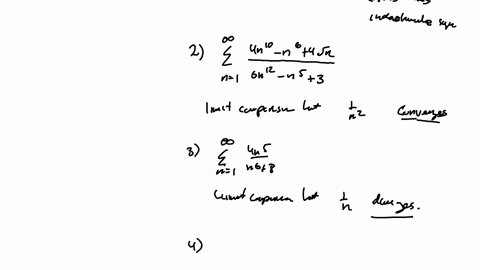 2) ∑_{n=1}^{∞} (4n^10 - n^6 + 4√n)/(6n^12 - n^5 + 3)
limit comparison test 1/n^2 converges
3) ∑_{n=1}^{∞} 4n^5/(n^6+8)
limit comparison test 1/n diverges.
4)